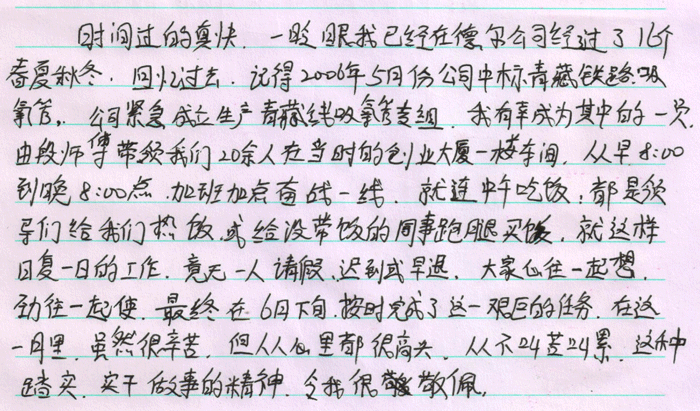 时间过的真快，一眨眼我已经在德尔公司经过了16个
春夏秋冬，回忆过去，记得2006年5月份公司中标青藏铁路吸
氧管，公司紧急成立生产青藏线吸氧管专组，我有幸成为其中的一员，
由段师傅带领我们20余人在当时的创业大厦一楼车间，从早8:00
到晚8:00点，加班加点奋战一线，就连中午吃饭，都是领
导们给我们热饭，或给没带饭的同事跑腿买饭，就这样
日复一日的工作，竟无一人请假，迟到或早退，大家心往一起想，
劲往一起使，最终在6月下旬，按时完成了这一艰巨的任务，在这
一月里，虽然很辛苦，但人人心里都很高兴，从不叫苦叫累，这种
踏实，实干做事的精神，令我很敬佩。